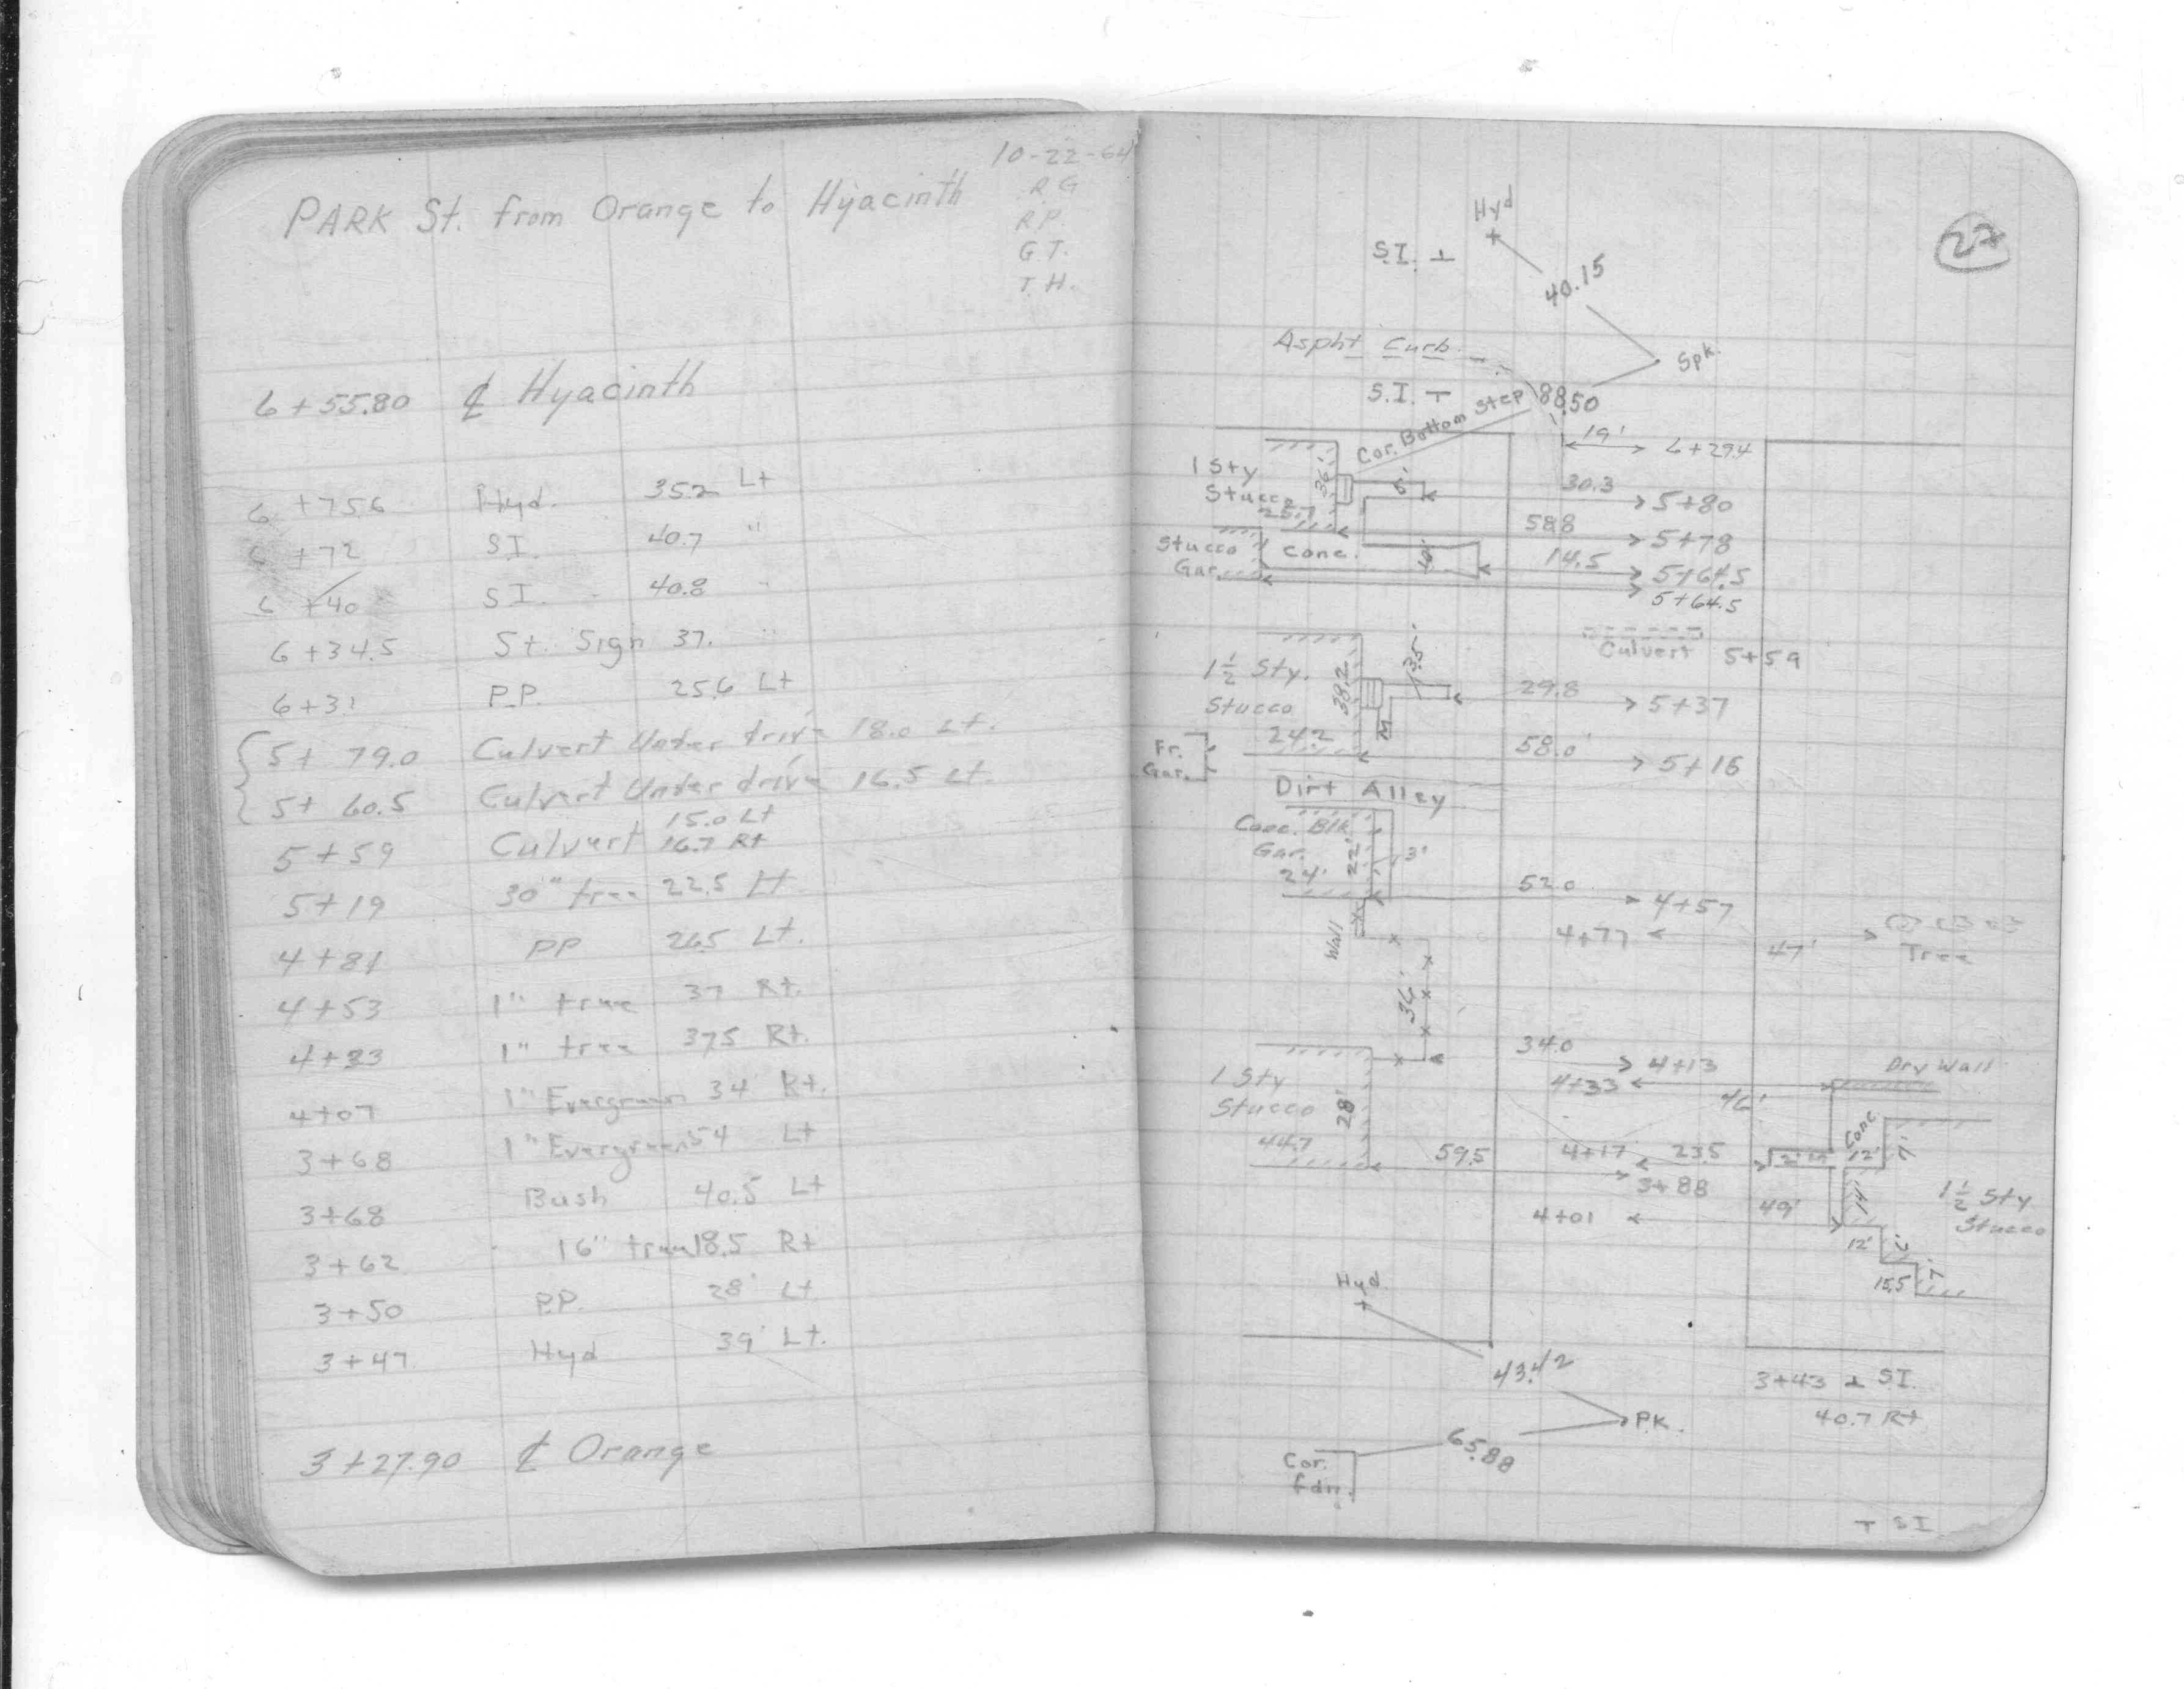 10-22-64
PARK St. from Orange to Hyacinth
R.G
R.P.
G.T.
T.H.
6+55.80 ⅊ Hyacinth
6 +75.6 Hyd. 35.2 Lt
6 +72 S.I. 40.7 "
6 +40 S.I. 40.8 "
6+34.5 St. Sign 37. "
6+31 P.P. 25.6 Lt
5+ 79.0 Culvert Under drive 18.0 Lt.
5+ 60.5 Culvert Under drive 16.5 Lt.
15.0 Lt
5+59 Culvert 16.7 Rt
5+19 30" tree 22.5 Lt
4+81 PP 26.5 Lt.
4+53 1" tree 37 Rt.
4+33 1" tree 37.5 Rt.
4+07 1" Evergreen 34' Rt.
3+68 1" Evergreen 54 Lt
3+68 Bush 40.5 Lt
3+62 16" tree 18.5 Rt
3+50 P.P. 28' Lt
3+47 Hyd 39' Lt.
3+27.90 ⅊ Orange
27
Hyd
S.I. ⊥
40.15
Spk.
Aspht Curb.
S.I. T
88.50
Cor. Bottom Step
19' 6+29.4
1 Sty
Stucco
36'
25.7
5'
30.3 5+80
58.8 5+78
Stucco
Gar.
Conc.
10'
14.5 5+64.5
5+64.5
Culvert 5+59
1 1/2 Sty.
Stucco
38.2
24.2
3.5'
29.8 5+37
58.0' 5+16
Fr.
Gar.
Dirt Alley
Conc. Blk
Gar.
24'
22'
3'
52.0 4+57
Wall
4+77 47'
Tree
36'
34.0 4+13
4+33 46'
Dry Wall
1 Sty
Stucco
28'
44.7
59.5
4+17 23.5
3+88
Conc
12'
7'
14'
4+01 49'
1 1/2 Sty
Stucco
12'
6'
15.5
7'
Hyd.
43.42
P.K.
65.88
Cor.
fdn.
3+43 ⊥ S.I.
40.7 Rt
T S.I.